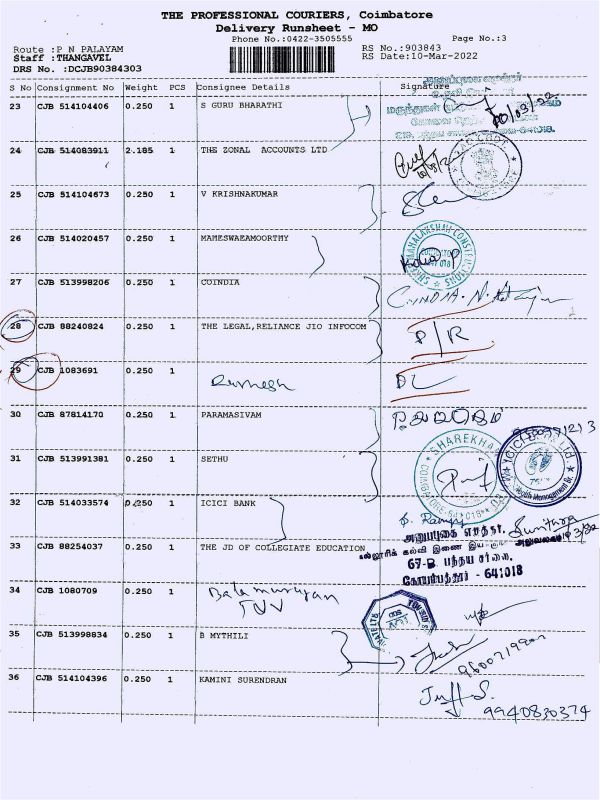 THE PROFESSIONAL COURIERS, Coimbatore
Delivery Runsheet - MO
Phone No.:0422-3505555 Page No.:3
Route :P N PALAYAM RS No.:903843
Staff :THANGAVEL RS Date:10-Mar-2022
DRS No. :DCJB90384303
S No Consignment No Weight PCS Consignee Details Signature
23 CJB 514104406 0.250 1 S GURU BHARATHI
24 CJB 514083911 2.185 1 THE ZONAL ACCOUNTS LTD
25 CJB 514104673 0.250 1 V KRISHNAKUMAR
26 CJB 514020457 0.250 1 MAMESWAEAMOORTHY
27 CJB 513998206 0.250 1 COINDIA
28 CJB 88240824 0.250 1 THE LEGAL,RELIANCE JIO INFOCOM P/R
29 CJB 1083691 0.250 1 Ramesh DL
30 CJB 87814170 0.250 1 PARAMASIVAM
31 CJB 513991381 0.250 1 SETHU
SHAREKHA
32 CJB 514033574 0.250 1 ICICI BANK
அனுப்புகை எழுத்தர்,
33 CJB 88254037 0.250 1 THE JD OF COLLEGIATE EDUCATION
67-B பந்தய சாலை,
கோயம்புத்தூர் - 641018
34 CJB 1080709 0.250 1 Bala murugan
35 CJB 513998834 0.250 1 B MYTHILI
36 CJB 514104396 0.250 1 KAMINI SURENDRAN
9940830374